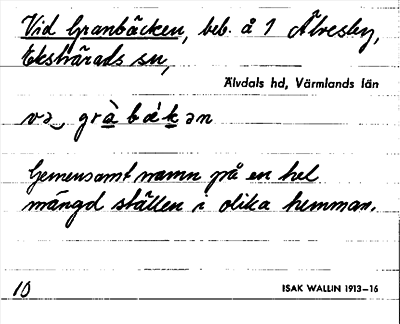 Vid Granbäcken, beb. å 1 Älvesby,
Ekshärads sn,
Älvdals hd, Värmlands län
və grà bä́kən
Gemensamt namn på en hel
mängd ställen i olika hemman.
10
ISAK WALLIN 1913–16